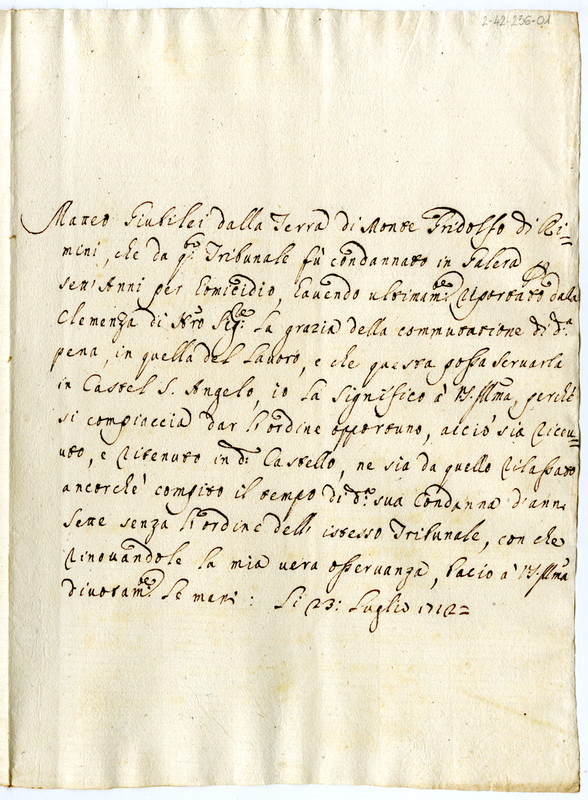 2-42-236-01
Matteo Giubilei dalla Terra di Monte Gridolfo di Ri=
mini, che da q.to Tribunale fù condannato in Galera p
sett'Anni per homicidio, havendo ultimam.te riportato dalla
Clemenza di N'ro Sig.re la grazia della commutazione di d.a
pena, in quella del Lavoro, e che questa possa servarla
in Castel S. Angelo, io la significo à VS. Ill'ma, perche
si compiaccia dar l'ordine opportuno, acciò sia ricevu=
uto, e ritenuto in d.o Castello, ne sia da quello rilassato
ancorche compito il tempo di d.a sua Condanna d'anni
sette senza l'ordine dell' istesso Tribunale, con che
rinovandole la mia vera osservanza, bacio à VS. Ill'ma
divotam.te le mani: Li 23: Luglio 1712=